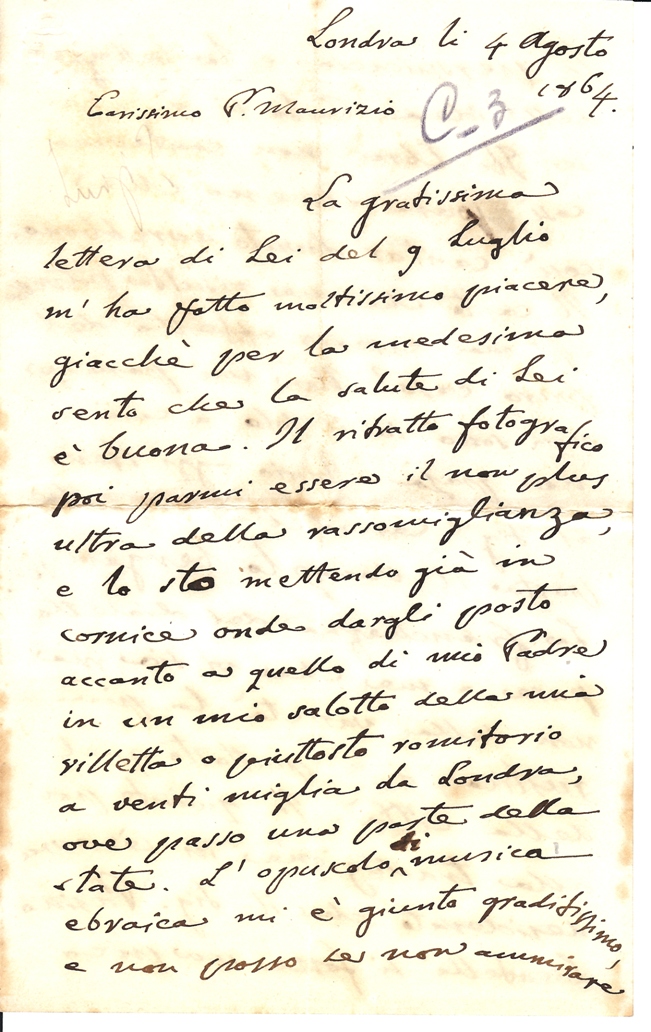 Londra li 4 Agosto
1864.
Carissimo P. Maurizio
C-3
La gratissima
lettera di Lei del 9 Luglio
m'ha fatto moltissimo piacere,
giacchè per la medesima
sento che la salute di Lei
è buona. Il ritratto fotografico
poi parmi essere il non plus
ultra della rassomiglianza,
e lo sto mettendo già in
cornice onde dargli posto
accanto a quello di mio Padre
in un mio salotto della mia
villetta o piuttosto romitorio
a venti miglia da Londra,
ove passo una parte della
state. L'opuscolo di musica
ebraica mi è giunto graditissimo,
e non posso se non ammirare